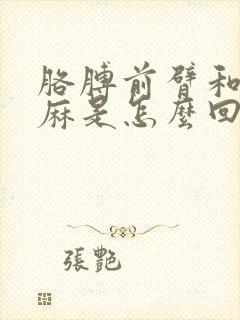 胳膊前臂和
麻是怎麼回
張艷